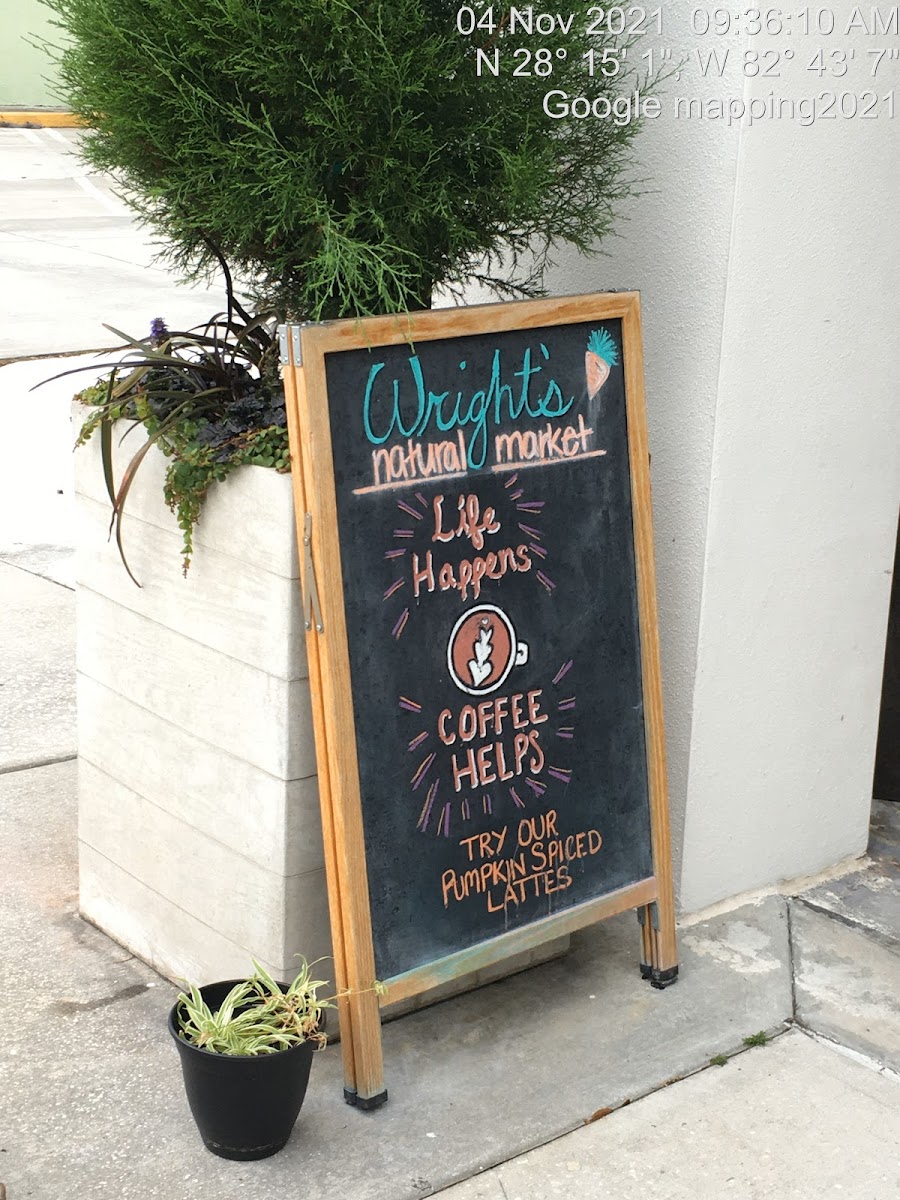 04 Nov 2021 09:36:10 AM
N 28° 15' 1", W 82° 43' 7"
Google mapping2021
Wright's
natural market
Life
Happens
COFFEE
HELPS
TRY OUR
PUMPKIN SPICED
LATTES